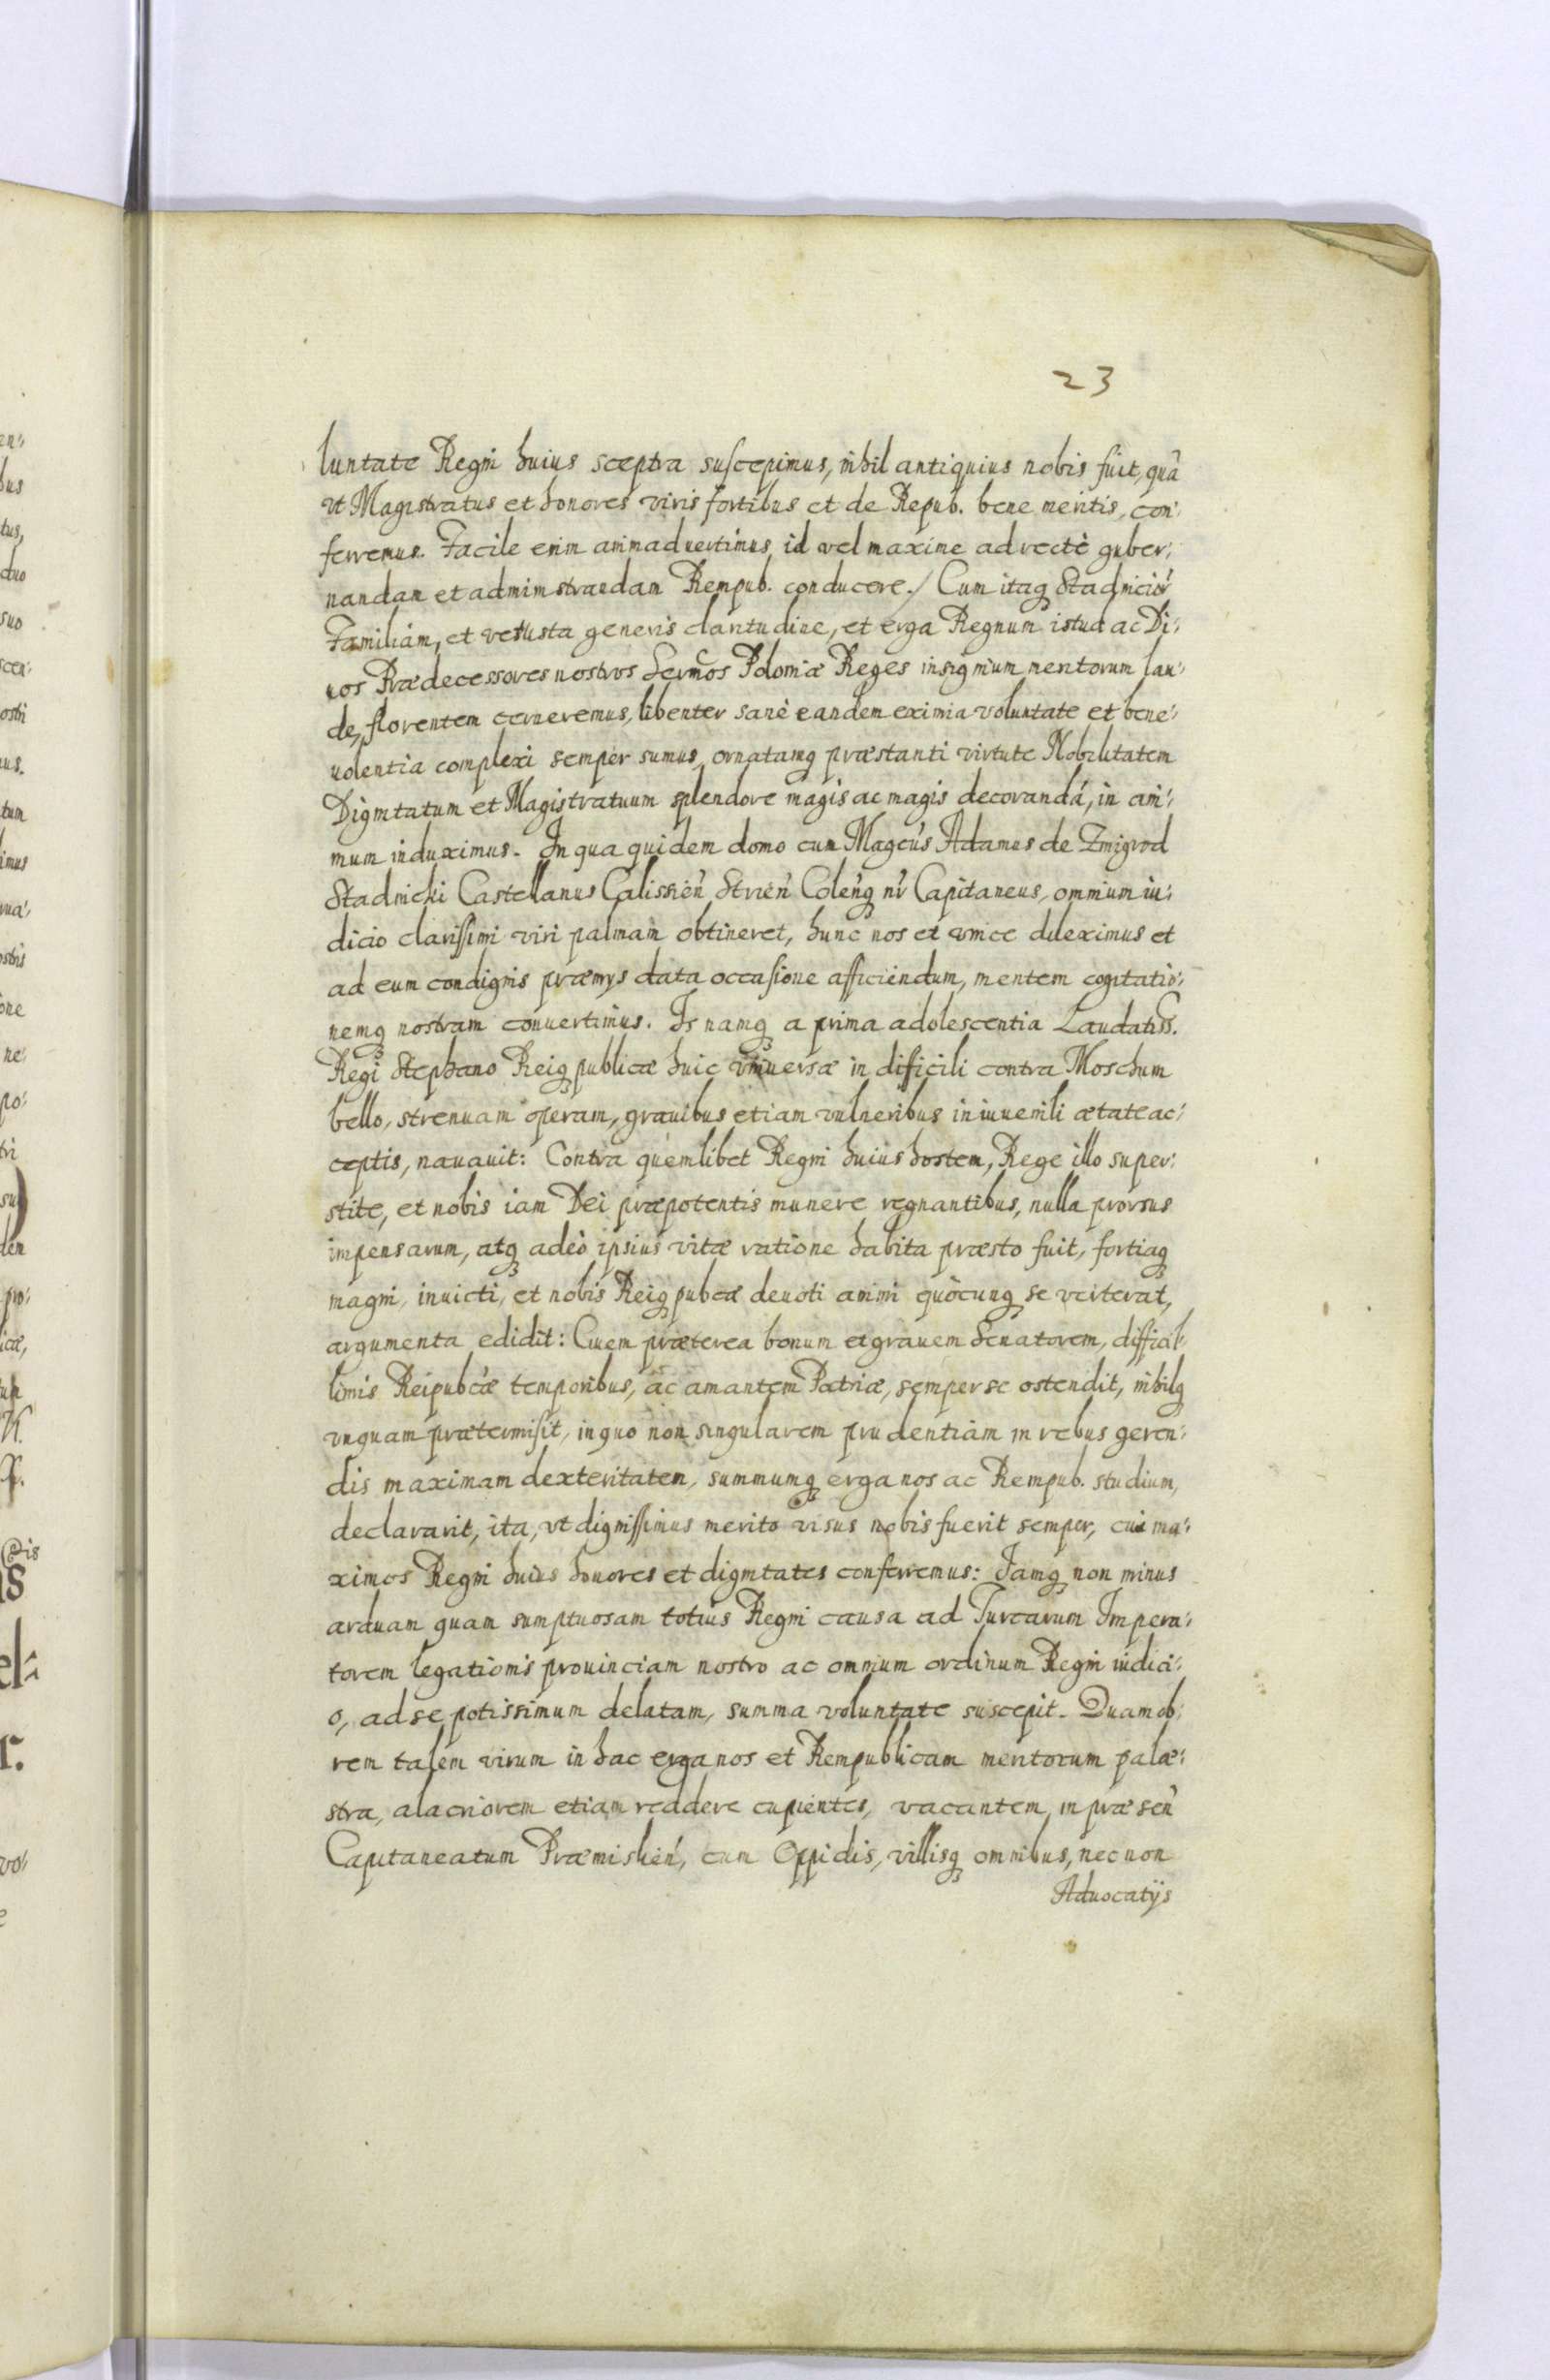 23
luntate Regni huius sceptra suscepimus, nihil antiquius nobis fuit, quã
vt Magistratus et honores viris fortibus et de Repub. bene meritis, con:
ferremus. Facile enim animaduertimus id vel maxime ad rectè guber:
nandam et administrandam Rempub. conducere./ Cum itaq Stadnicior̃
Familiam, et vetusta generis claritudine, et erga Regnum istud ac Di:
uos Prædecessores nostros Sermos Poloniæ Reges insignium meritorum lau:
de, florentem cerneremus, libenter sanè eandem eximia voluntate et bene:
uolentia complexi semper sumus, ornatamq præstanti virtute Nobilitatem
Dignitatum et Magistratuum splendore magis ac magis decorandã, in ani:
mum induximus. In qua quidem domo cum Magcus Adamus de Zmigrod
Stadnicki Castellanus Calissień Strień Coleńq nr̃ Capitaneus, omnium iu:
dicio clarissimi viri palmam obtineret, hunc nos et vnice dileximus et
ad eum condignis præmys data occasione afficiendum, mentem cogitatio:
nemq nostram conuertimus. Is namq a prima adolescentia Laudatiss.
Regi Stephano Reiq publicæ huic vniuersæ in difficili contra Moschum
bello, strenuam operam, grauibus etiam vulneribus in iuuenili ætate ac:
ceptis, nauauit: Contra quemlibet Regni huius hostem, Rege illo super:
stite, et nobis iam Dei præpotentis munere regnantibus, nulla prorsus
impensarum, atq adeò ipsius vitæ ratione habita præsto fuit, fortiaq
magni, inuicti, et nobis Reiq pubcæ deuoti animi quòcunq se verterat,
argumenta edidit: Ciuem præterea bonum et grauem Senatorem, difficil:
limis Reipubcæ temporibus, ac amantem Patriæ, semper se ostendit, nihilq
vnquam prætermisit, in quo non singularem prudentiam in rebus geren:
dis maximam dexteritatem, summumq erga nos ac Rempub. studium,
declararit, ita, vt dignissimus merito visus nobis fuerit semper, cui ma:
ximos Regni huius honores et dignitates conferremus: Iamq non minus
arduam quam sumptuosam totius Regni causa ad Turcarum Impera:
torem legationis prouinciam nostro ac omnium ordinum Regni iudici:
o, ad se potissimum delatam, summa voluntate suscepit. Quamob:
rem talem virum in hac erga nos et Rempublicam meritorum palæ:
stra, alacriorem etiam reddere cupientes, vacantem in præseń
Capitaneatum Præmislień, cum Oppidis, villisq omnibus, nec non
Aduocatijs